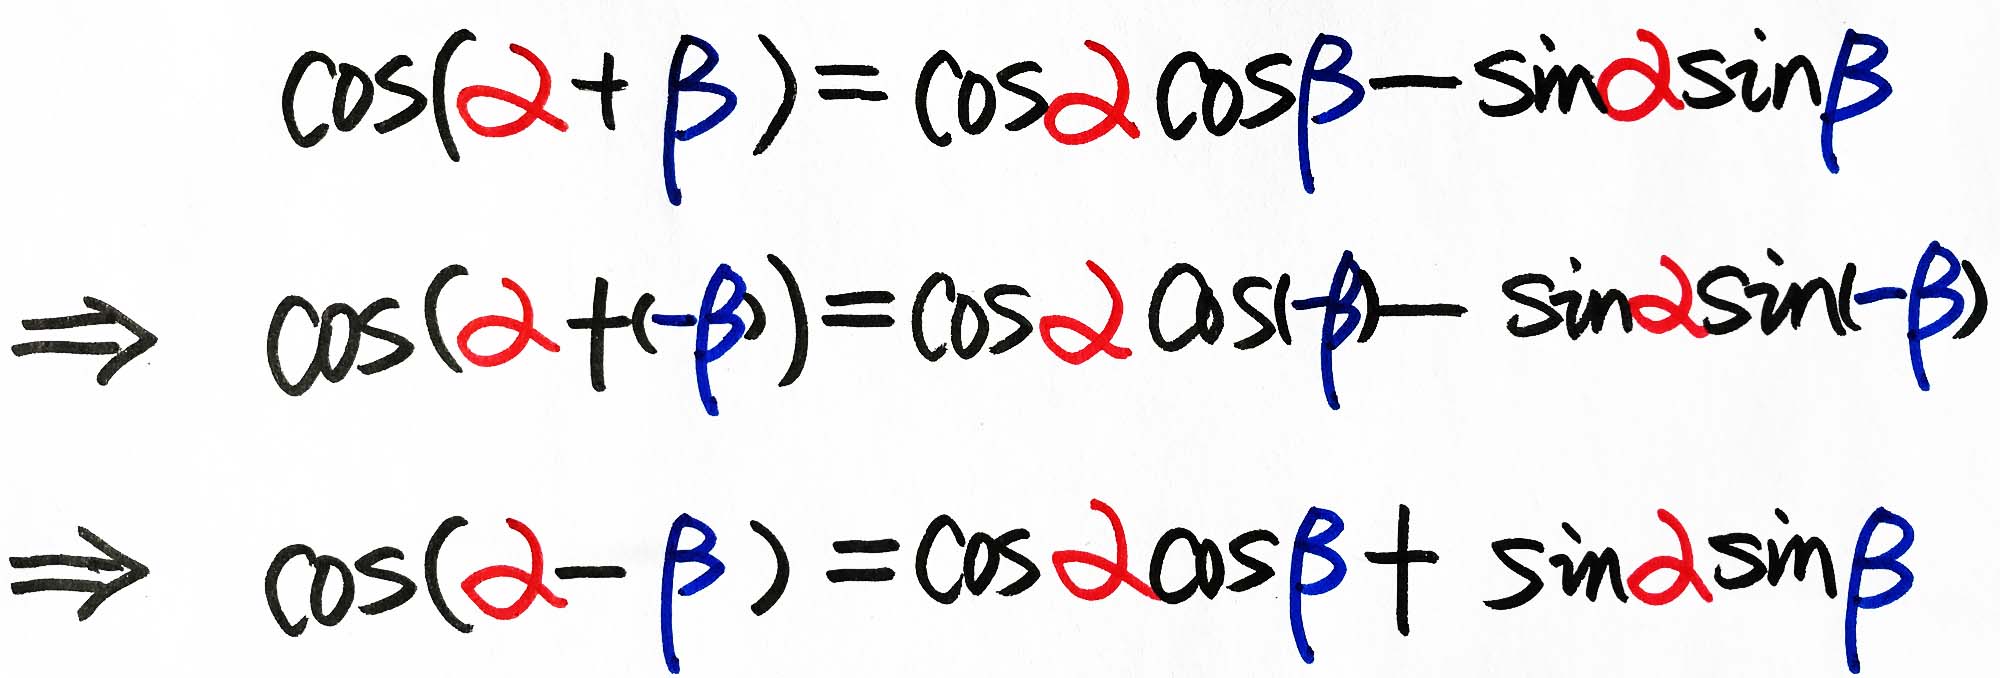 cos(α+β)=cosαcosβ−sinαsinβ
⇒ cos(α+(−β))=cosαcos(−β)−sinαsin(−β)
⇒ cos(α−β)=cosαcosβ+sinαsinβ